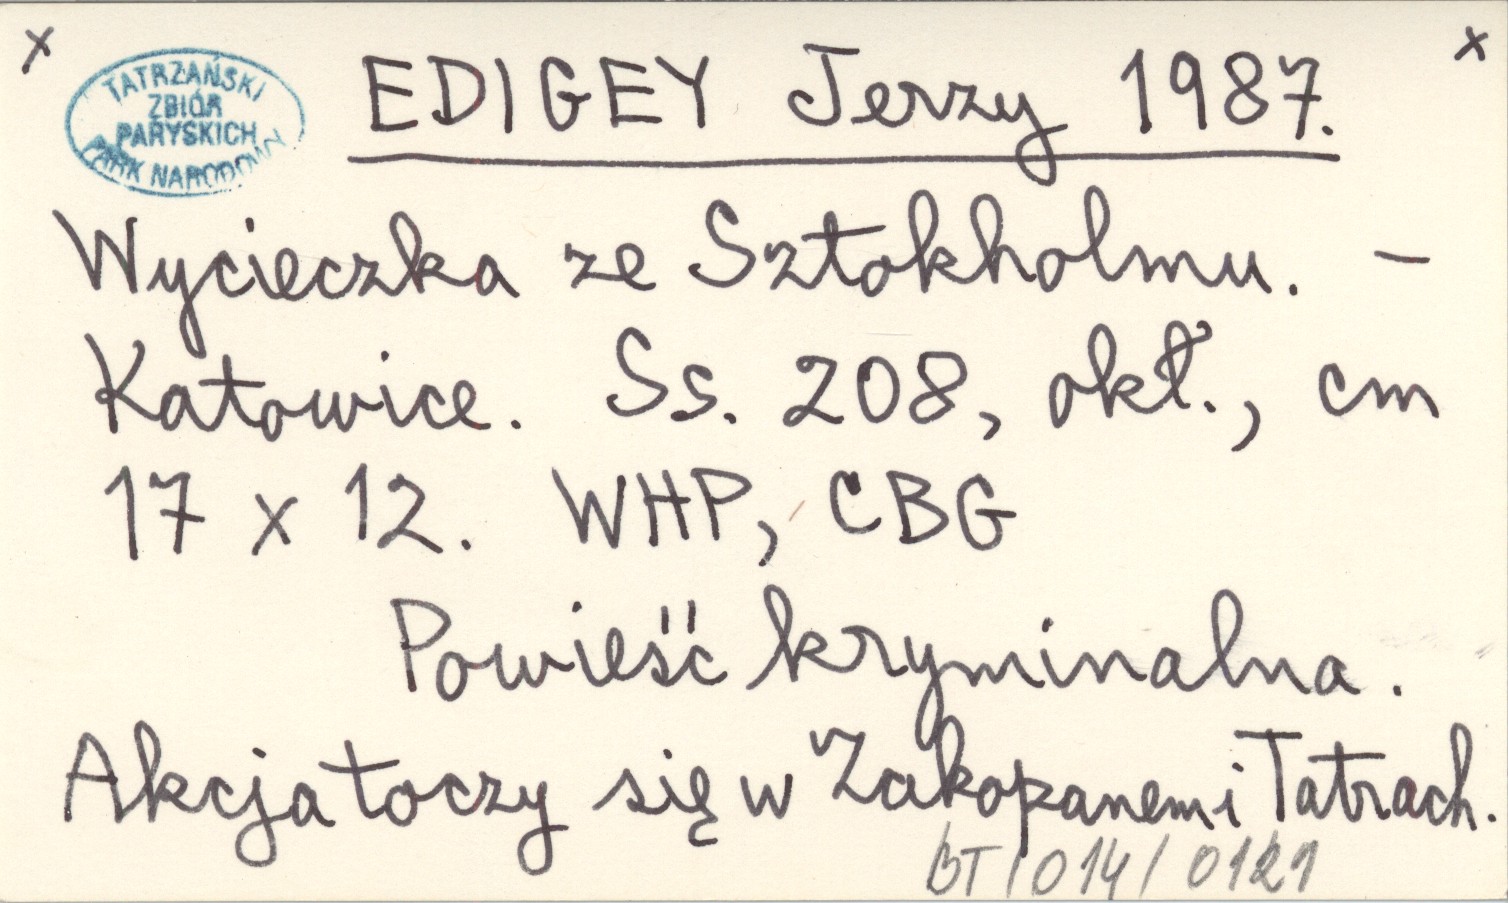 x
x
TATRZAŃSKI
ZBIÓR
PARYSKICH
PARK NARODOWY
EDIGEY Jerzy 1987.
Wycieczka ze Sztokholmu. –
Katowice. Ss. 208, okł., cm
17 x 12. WHP, CBG
Powieść kryminalna.
Akcja toczy się w Zakopanem i Tatrach.
BT/014/0121